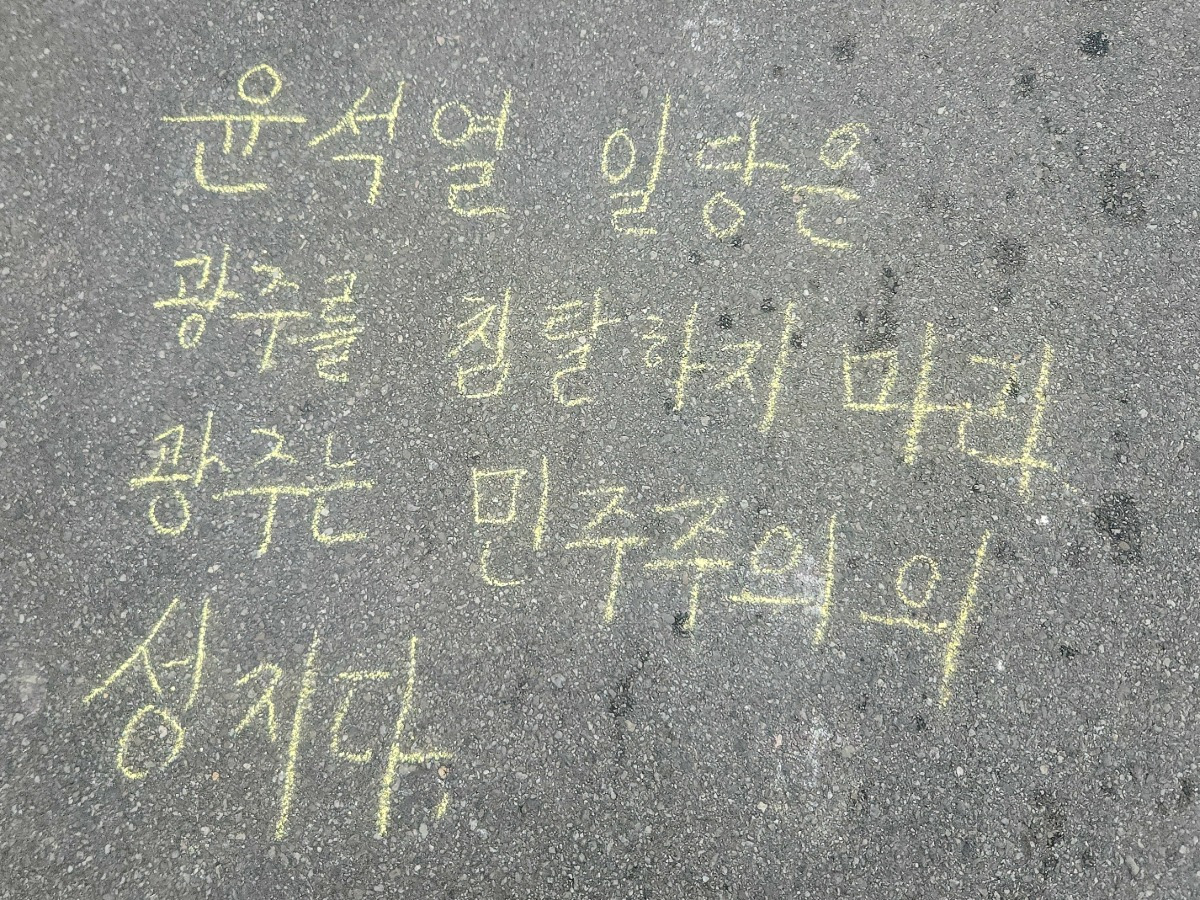 윤석열 일당은
광주를 침탈하지 마라
광주는 민주주의의
성지다,